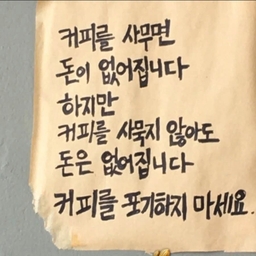 커피를 사무면
돈이 없어집니다
하지만
커피를 사묵지 않아도
돈은 없어집니다
커피를 포기하지 마세요.